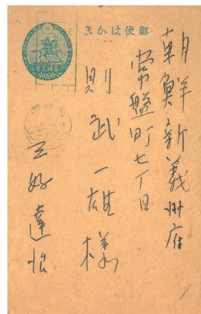 郵便はかき
朝鮮新義州府
常盤町七丁目
則武一雄様
三好達治